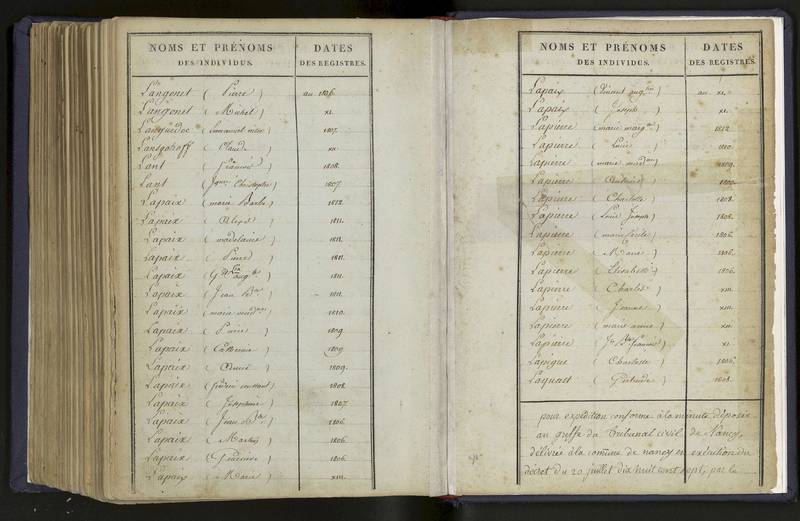 NOMS ET PRÉNOMS DATES
DES INDIVIDUS. DES REGISTRES.
Langonet (Pierre) an 1806.
Langonet (Michel) XI.
Languedoc (Emmanuel 1807.
Lansgohoff (Claude) XII
Lant (François) 1808.
Lant (Christophe) 1807.
Lapaix (marie Barbe) 1812.
Lapaix 1811.
Lapaix (madelaine) 1811.
Lapaix (Pierre) 1811.
Lapaix 1811
Lapaix (Jean Bte) 1811.
Lapaix (marie 1810.
Lapaix (Pierre) 1809
Lapaix (Catherine) 1809
Lapaix 1809.
Lapaix (fréderic constant) 1808.
Lapaix (Josephine) 1807
Lapaix (Jean Bte) 1806.
Lapaix 1806.
Lapaix 1806.
Lapaix (Marie) XIII.
NOMS ET PRÉNOMS DATES
DES INDIVIDUS. DES REGISTRES.
Lapaix (Vincent augtin) an XI.
Lapaix (Joseph) XI.
Lapierre (marie margte) 1812
Lapierre (Louis) 1810.
Lapierre (marie 1809.
Lapierre
Lapierre (Charlotte) 1808.
Lapierre (Louis Joseph) 1808.
Lapierre (marie 1806.
Lapierre (Marie) 1806.
Lapierre (Elisabeth) 1806.
Lapierre (Charles) XIII.
Lapierre (Jeanne) XIII.
Lapierre (marie anne) XII
Lapierre (Jn Bte francois) XI
Lapique (Charlotte) 1806.
Laquart (Gertrude) 1808.
pour expédition conforme à la minute déposée
au greffe du Tribunal civil de Nancy,
délivrée à la comune de nancy en exécution du
décret du 20 juillet dix huit cent sept, par le